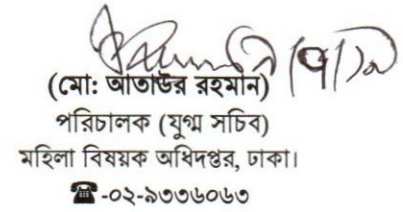 (মো: আতাউর রহমান)
পরিচালক (যুগ্ম সচিব)
মহিলা বিষয়ক অধিদপ্তর, ঢাকা।
☎-০২-৯৩৩৬০৬৩